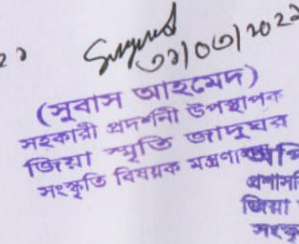 ৩১/০৩/২০২১
(সুবাস আহমেদ)
সহকারী প্রদর্শনী উপস্থাপক
জিয়া স্মৃতি জাদুঘর
সংস্কৃতি বিষয়ক
প্রশাসনি
জিয়া
সংস্কৃ